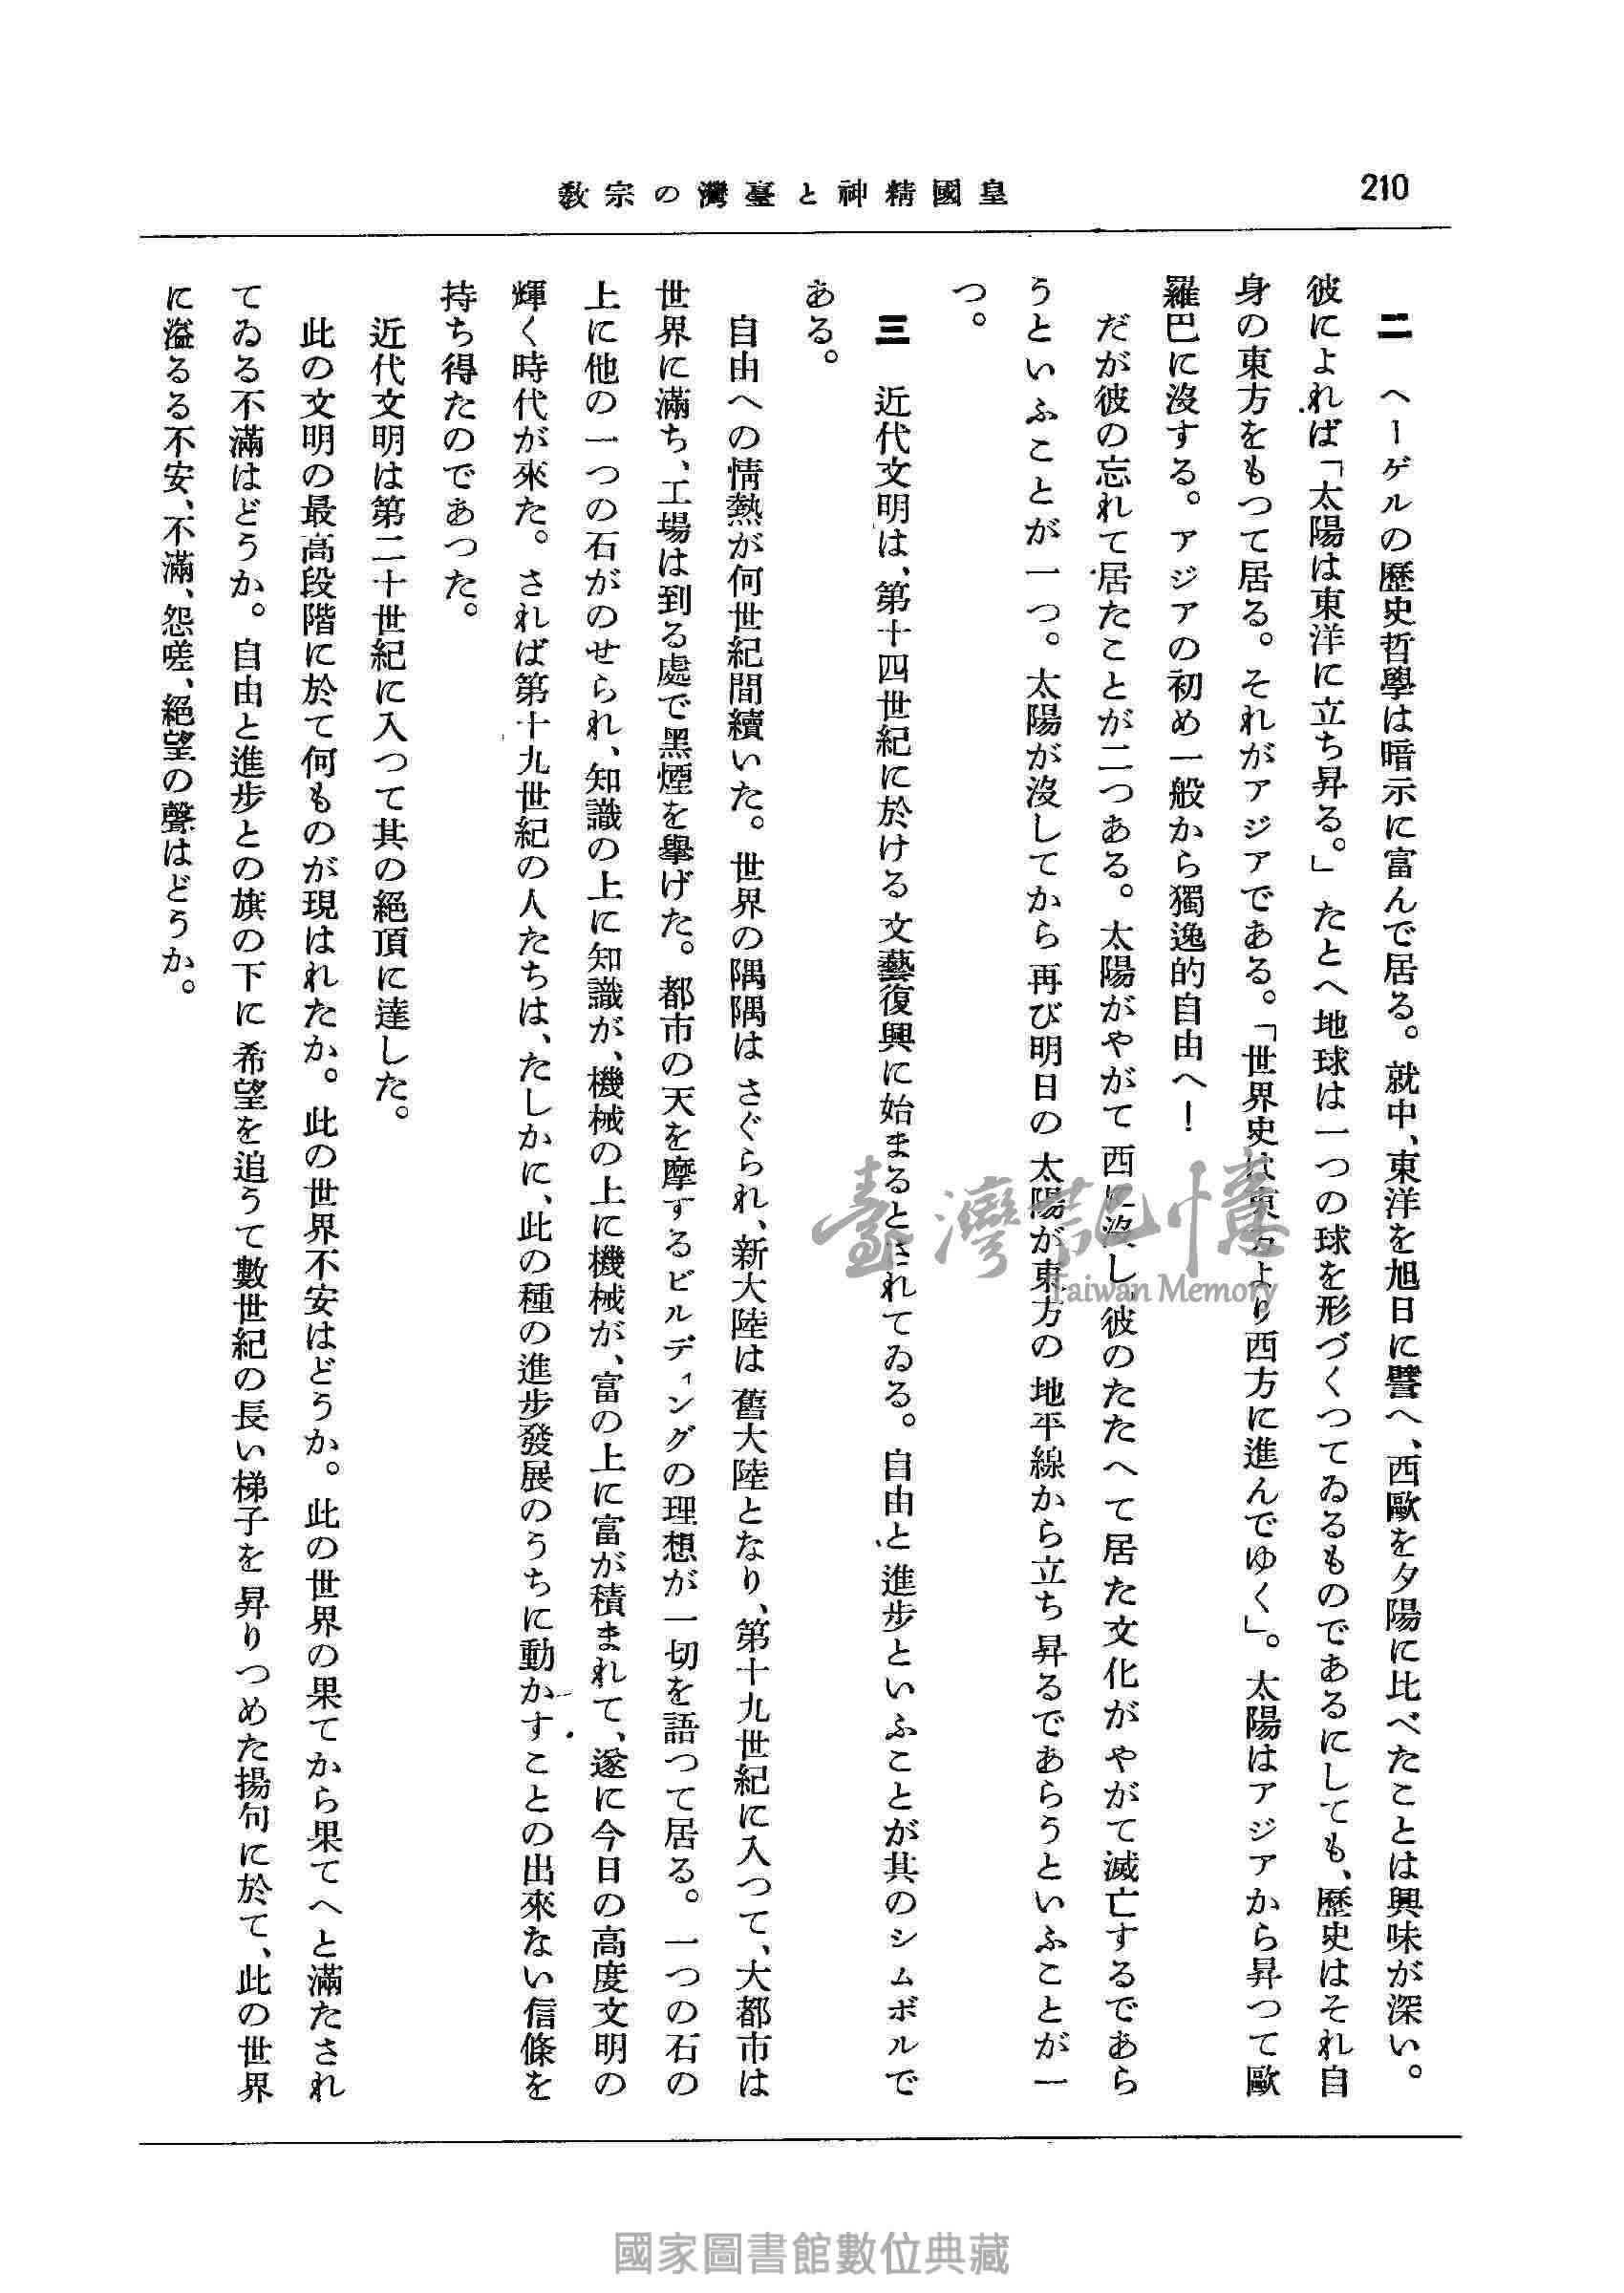 210
皇國精神と臺灣の宗教
二　ヘーゲルの歷史哲學は暗示に富んで居る。就中、東洋を旭日に譬へ、西歐を夕陽に比べたことは興味が深い。
彼によれば「太陽は東洋に立ち昇る。」たとへ地球は一つの球を形づくつてゐるものであるにしても、歷史はそれ自
身の東方をもつて居る。それがアジアである。「世界史は東方より西方に進んでゆく」。太陽はアジアから昇つて歐
羅巴に沒する。アジアの初め一般から獨逸的自由へ！
だが彼の忘れて居たことが二つある。太陽がやがて西に沒し、彼のたたへて居た文化がやがて滅亡するであら
うといふことが一つ。太陽が沒してから再び明日の太陽が東方の地平線から立ち昇るであらうといふことが一
つ。
三　近代文明は、第十四世紀に於ける文藝復興に始まるとされてゐる。自由と進步といふことが其のシムボルで
ある。
自由への情熱が何世紀間續いた。世界の隅隅はさぐられ、新大陸は舊大陸となり、第十九世紀に入つて、大都市は
世界に滿ち、工場は到る處で黑煙を擧げた。都市の天を摩するビルディングの理想が一切を語つて居る。一つの石の
上に他の一つの石がのせられ、知識の上に知識が、機械の上に機械が、富の上に富が積まれて、遂に今日の高度文明の
輝く時代が來た。されば第十九世紀の人たちは、たしかに、此の種の進步發展のうちに動かすことの出來ない信條を
持ち得たのであつた。
近代文明は第二十世紀に入つて其の絕頂に達した。
此の文明の最高段階に於て何ものが現はれたか。此の世界不安はどうか。此の世界の果てから果てへと滿たされ
てゐる不滿はどうか。自由と進步との旗の下に希望を追うて數世紀の長い梯子を昇りつめた揚句に於て、此の世界
に溢るる不安、不滿、怨嗟、絕望の聲はどうか。
臺灣記憶
Taiwan Memory
國家圖書館數位典藏